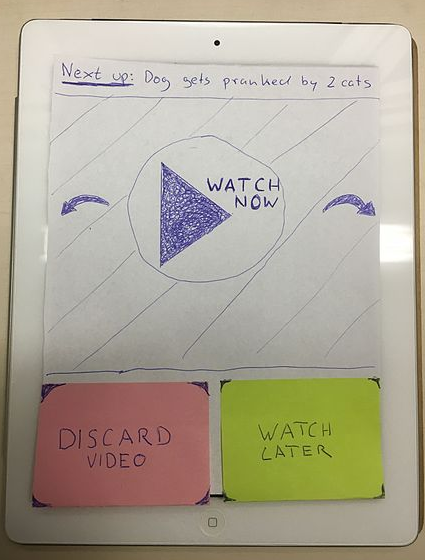 Next up: Dog gets pranked by 2 cats
WATCH
NOW
DISCARD
VIDEO
WATCH
LATER